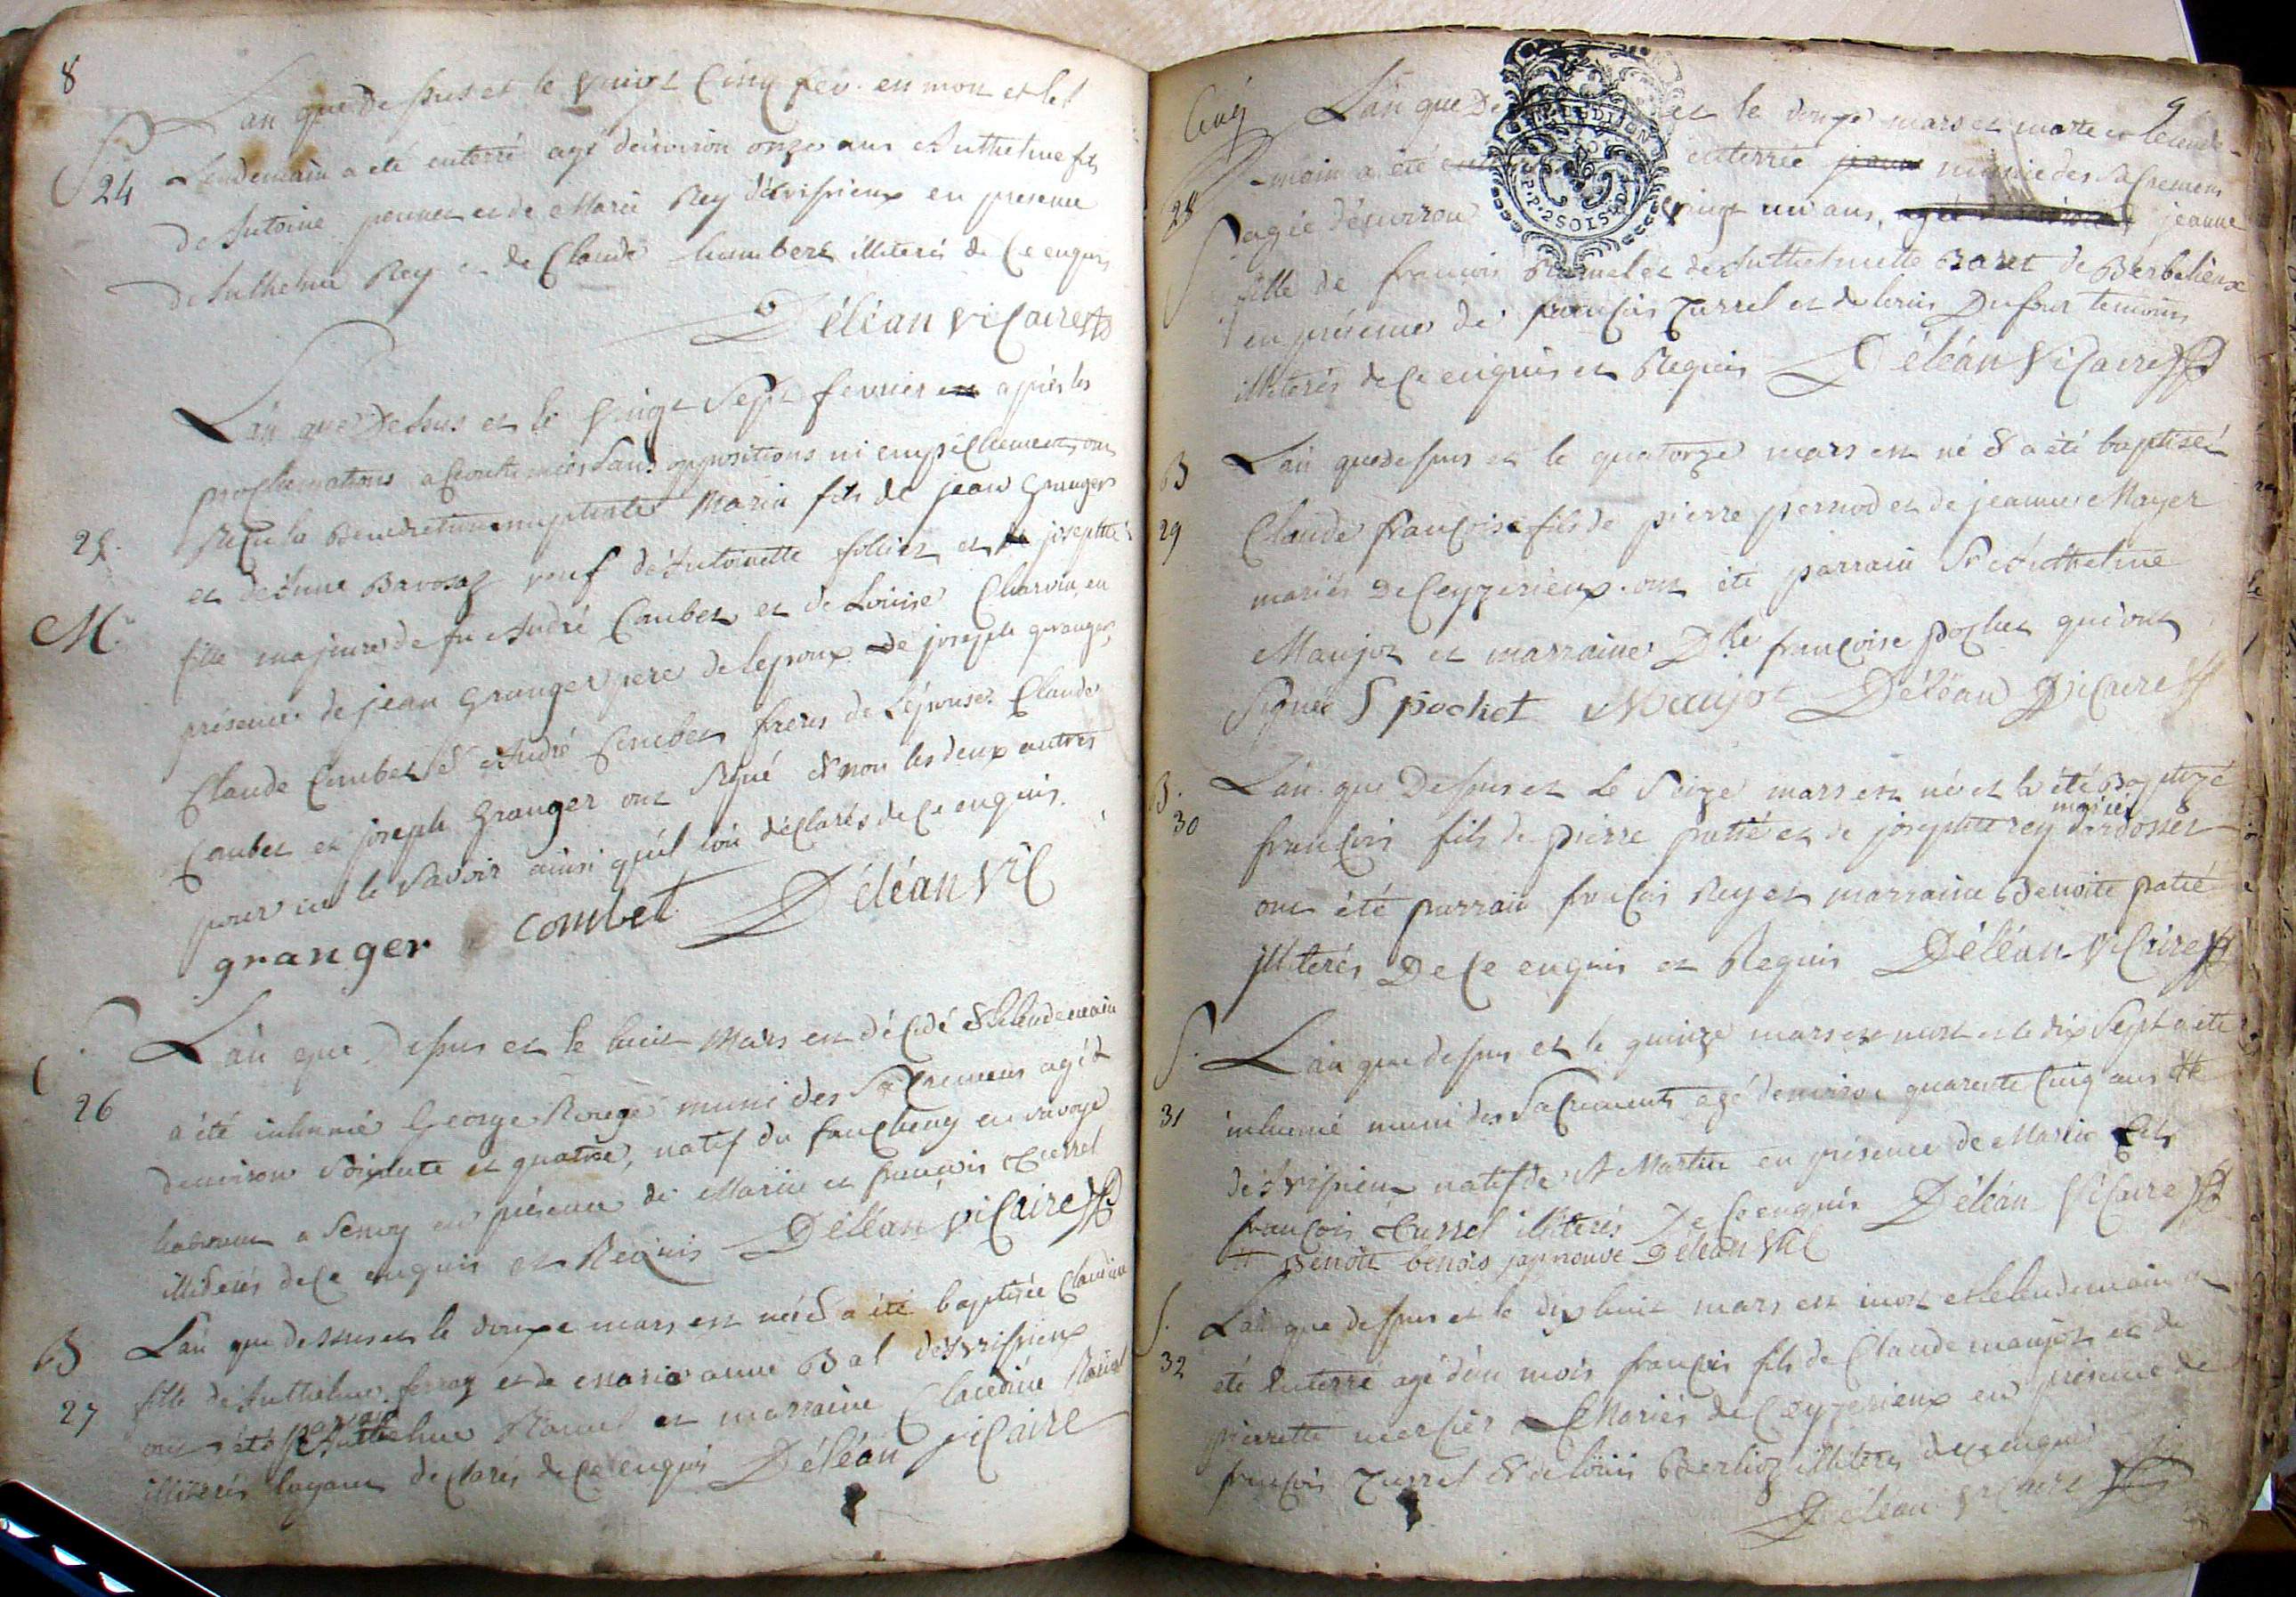 8
L'an que dessus et le vingt cinq fev. est mort et le
24
S
Lendemain a été enterré agé d'environ onze ans Anthelme fils
de Antoine pennet et de Marie Rey d'avrissieux en presence
de Anthelme Rey et de Claude humbert illiterés de ce enquis
Déléan Vicaire
L'an que dessus et le vingt sept fevrier après les
proclamations accoutumées sans oppositions ni empêchement ont
25.
Reçu la Benediction nuptiale Marin fils de jean Granger
et de Anne Bavosaz veuf d'Antoinette folliet et josephte
M.
fille majeure de fu André Combet et de Louise Charvin en
présence de jean Granger pere de lepoux de joseph granger,
Claude Combet & André Combet freres de l'épouse. Claude
Combet et joseph Granger ont signé & non les deux autres
pour ne le savoir ainsi qu'il l'ont déclarés de ce enquis.
granger combet Déléan Vic
S.
L'an que dessus et le huit Mars est décédé & le lendemain
26
a été inhumé George Rouge muni des Sacremens agé
d'environ soixante et quatre, natif du faucheny en savoye
a Senoy en présence de Marin et françois Curral
illiterés de ce enquis et Requis Déléan Vicaire
B
L'an que dessus et le douze mars est née & a été baptisée Claudine
27
fille de Anthelme ferroz et de Marie anne Bal d'Avrissieux
ont été parrain Anthelme Ramel et marraine Claudine Ramel
illiterés l'ayant declarés de ce enquis Déléan Vicaire
9
Cinq
L'an que De et le douze mars est morte et le lende-
-main a été enterrée munie des Sacremens
28
S
agée d'environ vingt un ans, jeanne
fille de francois Ramel et de Anthelmette Baret de Berbelieux
en présence de françois Curral et de louis Dufour temoins
illiterés de ce enquis et Requis Déléan Vicaire
GEN. DE DIJON
P.P. 2 SOLS
B
L'an que dessus et le quatorze mars est né & a été baptisé
29
Claude françois fils de pierre pernod et de jeanne Mayer
mariés De Ceyzerieux. ont été parrain Sr Anthelme
Maujot et marraine Dlle françoise pochet qui ont
Signé S pochet Maujot Déléan Vicaire
B.
L'an que Dessus et le Seize mars est né et a été Baptizé
30
mariés
françois fils de pierre patié et de josephte rey d'ardosset
ont été parrain françois Rey et marraine Benoite patié
illiterés De ce enquis et Requis Déléan Vicaire
S.
L'an que dessus et le quinze mars est mort et le dix sept a été
31
inhumé muni des Sacrements agé d'environ quarante cinq ans #
d'Avrissieu natif de St Martin en présence de Marin et de
françois Curral illiterés De ce enquis Déléan Vicaire
# Benoit benois japrouve Déléan Vic
S.
L'an que dessus et le dix huit mars est mort et le lendemain a
32
été Enterré agé d'un mois françois fils de Claude maujot et de
pierrette mercier Mariés de Ceyzerieux en présence de
françois Curral & de louis Berlioz illiterés de ce enquis
Déléan Vicaire